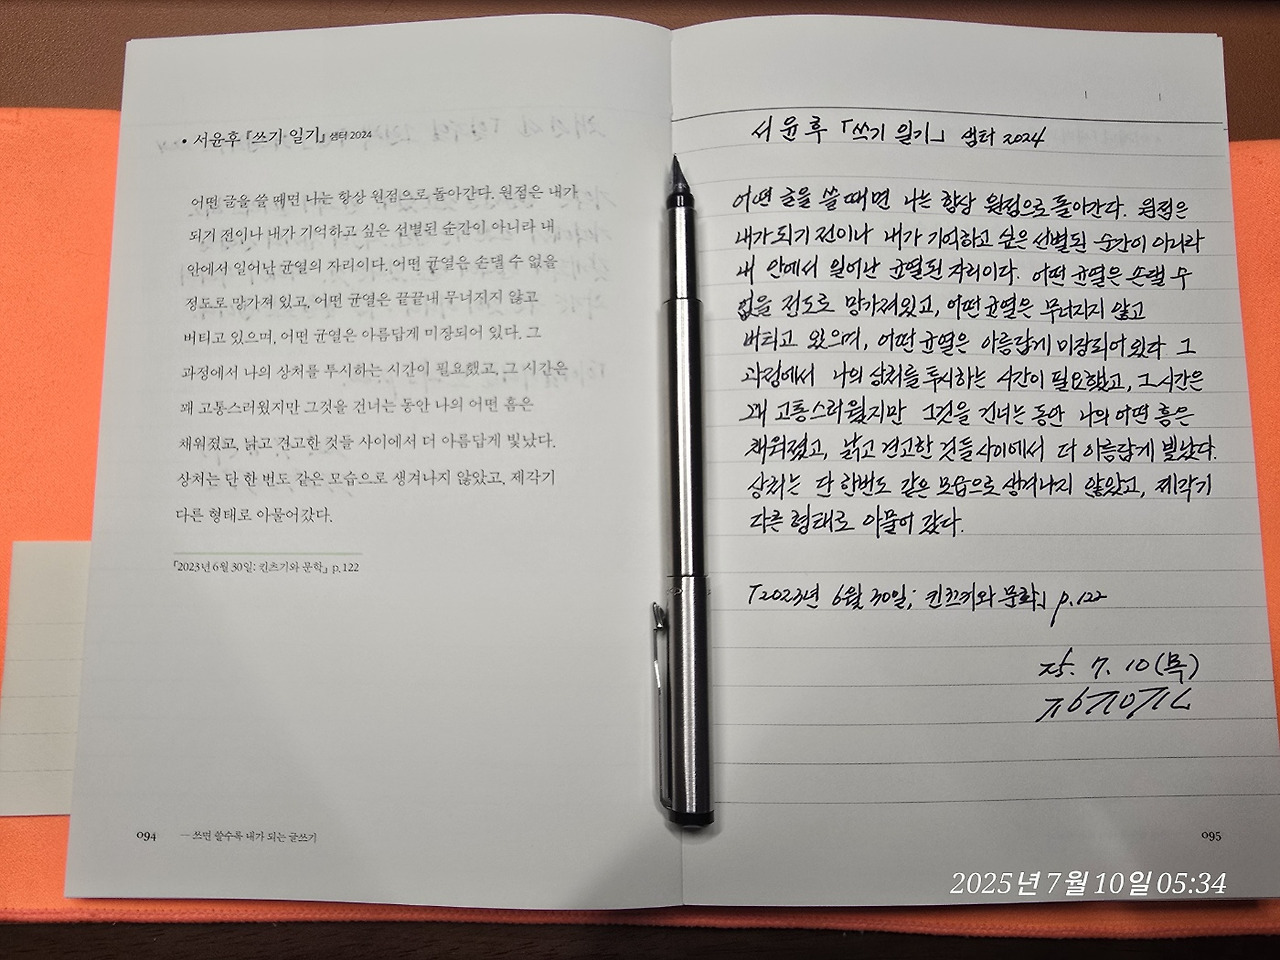 • 서윤후 『쓰기 일기』 샘터 2024
어떤 글을 쓸 때면 나는 항상 원점으로 돌아간다. 원점은 내가
되기 전이나 내가 기억하고 싶은 선별된 순간이 아니라 내
안에서 일어난 균열의 자리이다. 어떤 균열은 손댈 수 없을
정도로 망가져 있고, 어떤 균열은 끝끝내 무너지지 않고
버티고 있으며, 어떤 균열은 아름답게 미장되어 있다. 그
과정에서 나의 상처를 투시하는 시간이 필요했고, 그 시간은
꽤 고통스러웠지만 그것을 건너는 동안 나의 어떤 흠은
채워졌고, 낡고 견고한 것들 사이에서 더 아름답게 빛났다.
상처는 단 한 번도 같은 모습으로 생겨나지 않았고, 제각기
다른 형태로 아물어갔다.
『2023년 6월 30일: 킨츠기와 문학』 p.122
094 — 쓰면 쓸수록 내가 되는 글쓰기
서윤후 「쓰기 일기」 샘터 2024
어떤 글을 쓸 때면 나는 항상 원점으로 돌아간다. 원점은
내가 되기 전이나 내가 기억하고 싶은 선별된 순간이 아니라
내 안에서 일어난 균열된 자리이다. 어떤 균열은 손댈 수
없을 정도로 망가져있고, 어떤 균열은 무너지지 않고
버티고 있으며, 어떤 균열은 아름답게 미장되어 있다. 그
과정에서 나의 상처를 투시하는 시간이 필요했고, 그 시간은
꽤 고통스러웠지만 그것을 건너는 동안 나의 어떤 흠은
채워졌고, 낡고 견고한 것들 사이에서 더 아름답게 빛났다.
상처는 단 한번도 같은 모습으로 생겨나지 않았고, 제각기
다른 형태로 아물어 갔다.
「2023년 6월 30일; 킨츠키와 문학」 p.122
25. 7. 10 (목)
095
2025년 7월 10일 05:34